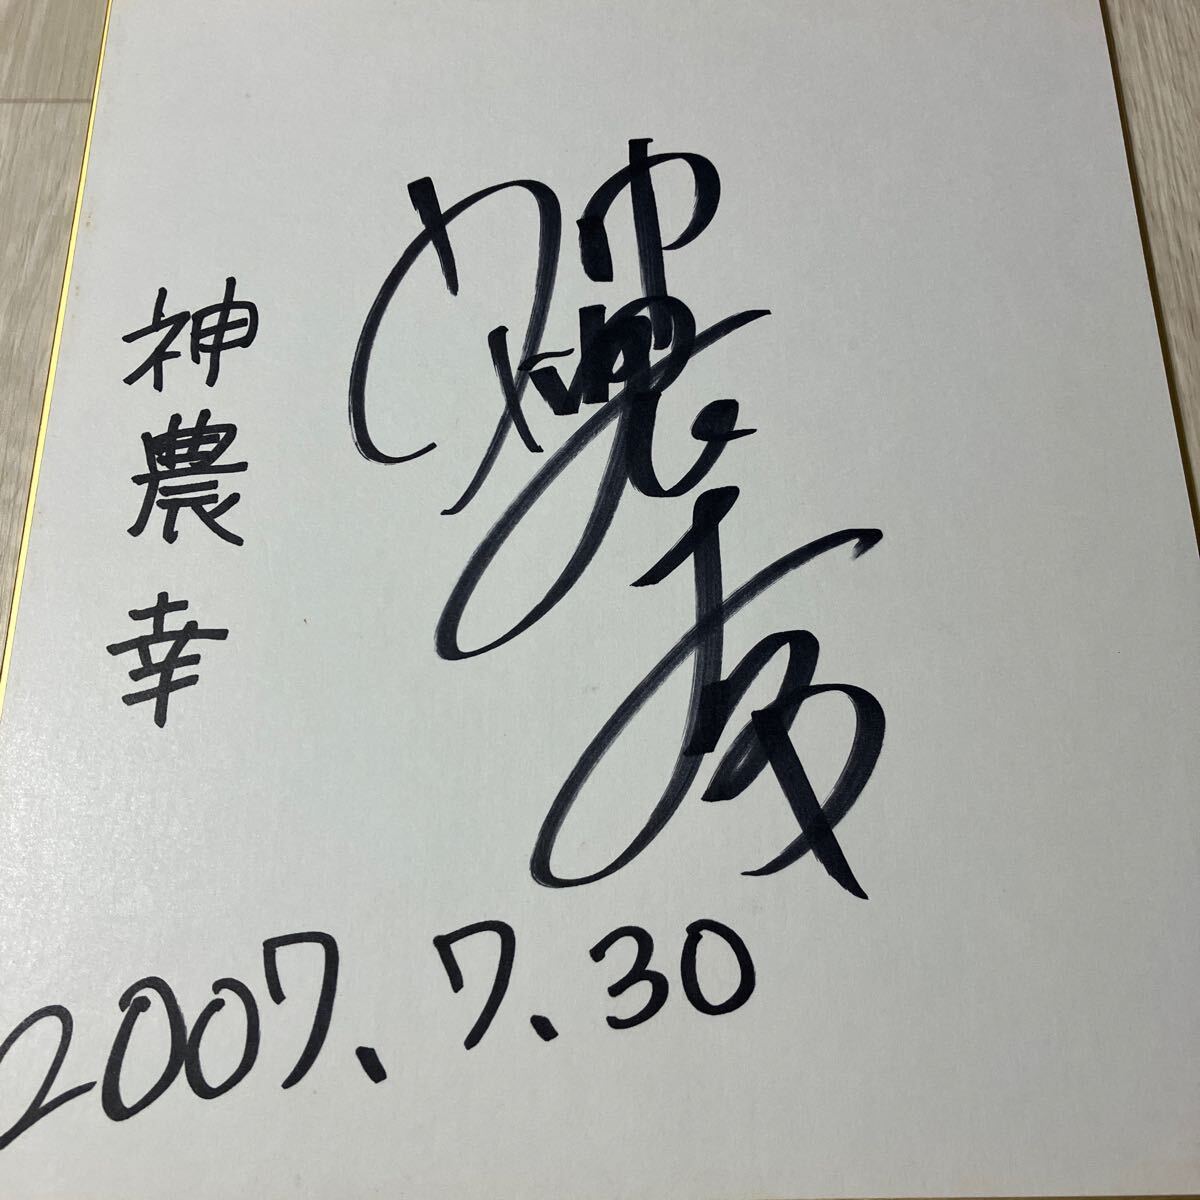 神農 幸
2007.7.30